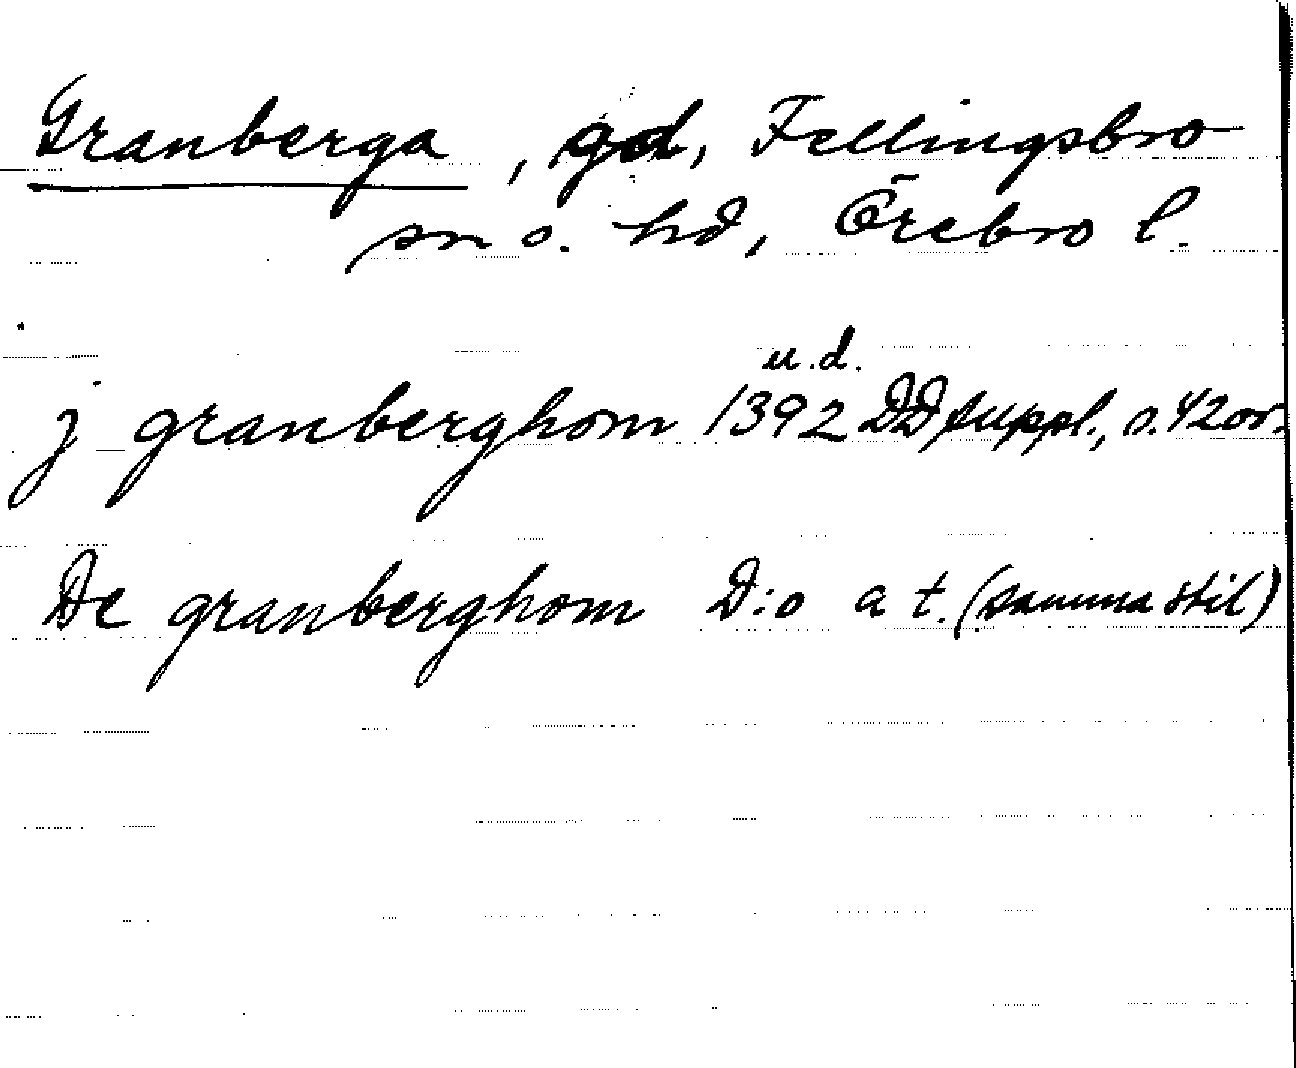 Granberga, gd, Fellingsbro
sn o. hd, Örebro l.
u.d.
j granberghom 1392 DD suppl., s. 42 or.
De granberghom D:o a t. (samma stil)